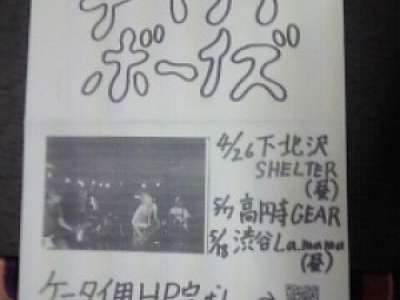 ボーイズ
4/26 下北沢
SHELTER
(昼)
5/7 高円寺GEAR
5/18 渋谷La.mama
(昼)
ケータイ用HP